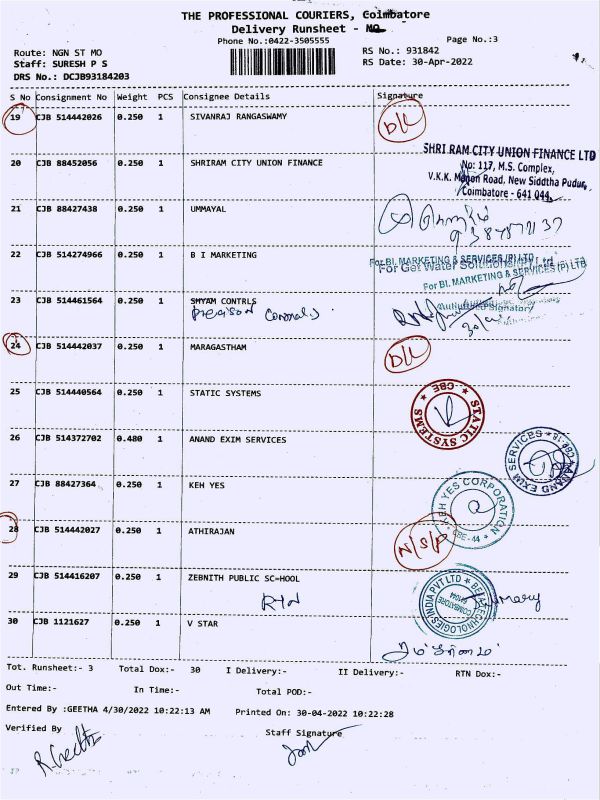 THE PROFESSIONAL COURIERS, Coimbatore
Delivery Runsheet -
Phone No.:0422-3505555
Page No.:3
Route: NGN ST MO
RS No.: 931842
Staff: SURESH P S
RS Date: 30-Apr-2022
DRS No.: DCJB93184203
S No Consignment No Weight PCS Consignee Details Signature
19 CJB 514442026 0.250 1 SIVANRAJ RANGASWAMY D/L
20 CJB 88452056 0.250 1 SHRIRAM CITY UNION FINANCE
SHRI RAM CITY UNION FINANCE LTD
No: 117, M.S. Complex,
V.K.K. Menon Road, New Siddtha Pudur,
Coimbatore - 641 044.
21 CJB 88427438 0.250 1 UMMAYAL
22 CJB 514274966 0.250 1 B I MARKETING
For BI. MARKETING & SERVICES (P) LTD
For Get Water Solutions
For BI. MARKETING & SERVICES (P) LTD
Authorised Signatory
23 CJB 514461564 0.250 1 SMYAM CONTRLS
Precison Controls
24 CJB 514442037 0.250 1 MARAGASTHAM D/L
25 CJB 514440564 0.250 1 STATIC SYSTEMS
STATIC SYSTEMS CBE
26 CJB 514372702 0.480 1 ANAND EXIM SERVICES
ANAND EXIM SERVICES
27 CJB 88427364 0.250 1 KEH YES
KEH YES CORPORATION CBE-44
28 CJB 514442027 0.250 1 ATHIRAJAN N/S/P
29 CJB 514416207 0.250 1 ZEBNITH PUBLIC SC=HOOL
RTN
TECHNOLOGIES INDIA PVT LTD
COIMBATORE
30 CJB 1121627 0.250 1 V STAR
Tot. Runsheet:- 3 Total Dox:- 30 I Delivery:- II Delivery:- RTN Dox:-
Out Time:- In Time:- Total POD:-
Entered By :GEETHA 4/30/2022 10:22:13 AM Printed On: 30-04-2022 10:22:28
Verified By Staff Signature